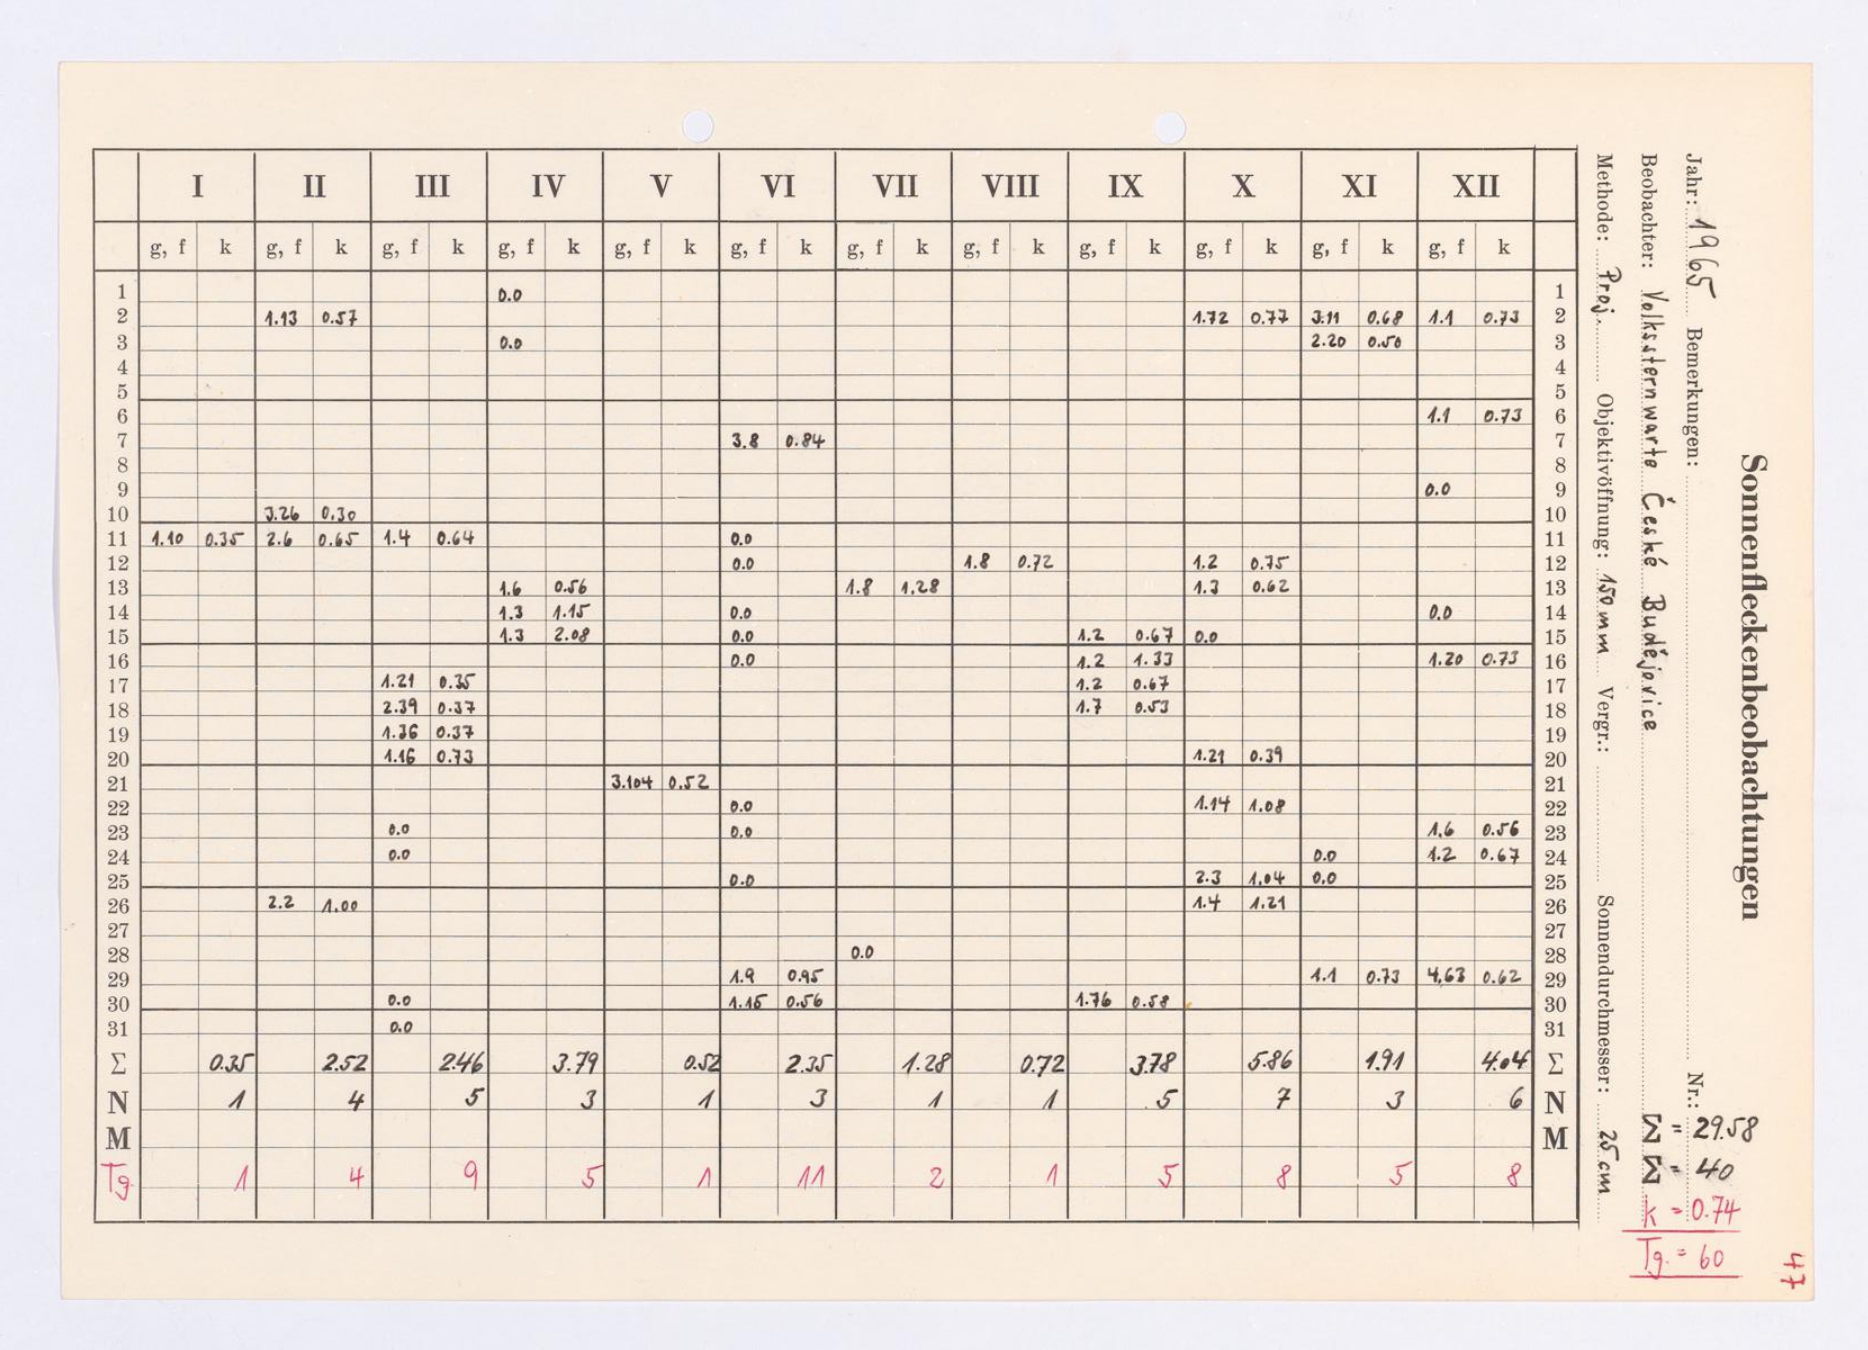 Sonnenfleckenbeobachtungen
Jahr: 1965 Bemerkungen: Nr.:
Beobachter: Volkssternwarte České Budějovice
Methode: Proj. Objektivöffnung: 150 mm Vergr.: Sonnendurchmesser: 25 cm
I II III IV V VI VII VIII IX X XI XII
g, f k g, f k g, f k g, f k g, f k g, f k g, f k g, f k g, f k g, f k g, f k g, f k
1 0.0 1
2 1.13 0.57 1.72 0.77 3.11 0.68 1.1 0.73 2
3 0.0 2.20 0.50 3
4 4
5 5
6 1.1 0.73 6
7 3.8 0.84 7
8 8
9 0.0 9
10 3.26 0.30 10
11 1.10 0.35 2.6 0.65 1.4 0.64 0.0 11
12 0.0 1.8 0.72 1.2 0.75 12
13 1.6 0.56 1.8 1.28 1.3 0.62 13
14 1.3 1.15 0.0 0.0 14
15 1.3 2.08 0.0 1.2 0.67 0.0 15
16 0.0 1.2 1.33 1.20 0.73 16
17 1.21 0.35 1.2 0.67 17
18 2.39 0.37 1.7 0.53 18
19 1.36 0.37 19
20 1.16 0.73 1.21 0.39 20
21 3.104 0.52 21
22 0.0 1.14 1.08 22
23 0.0 0.0 1.6 0.56 23
24 0.0 0.0 1.2 0.67 24
25 0.0 2.3 1.04 0.0 25
26 2.2 1.00 1.4 1.21 26
27 27
28 0.0 28
29 1.9 0.95 1.1 0.73 4.63 0.62 29
30 0.0 1.15 0.56 1.76 0.58 30
31 0.0 31
Σ 0.35 2.52 2.46 3.79 0.52 2.35 1.28 0.72 3.78 5.86 1.91 4.04 Σ
N 1 4 5 3 1 3 1 1 5 7 3 6 N
M M
Tg. 1 4 9 5 1 11 2 1 5 8 5 8
Σ = 29.58
Σ = 40
k = 0.74
Tg. = 60
47